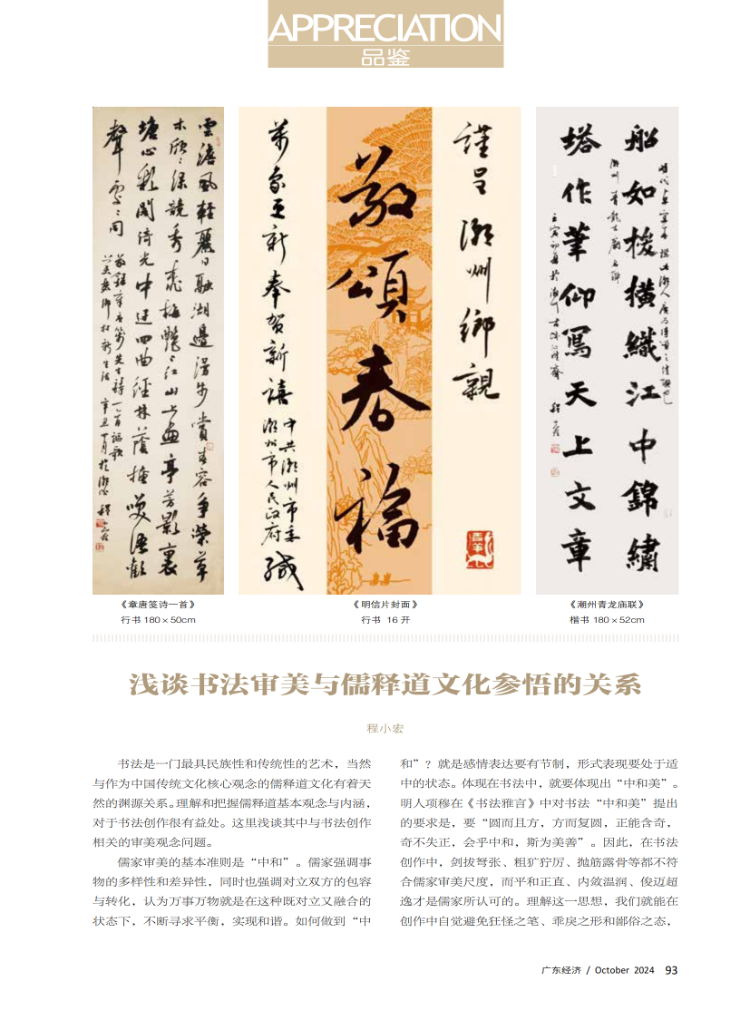 APPRECIATION
品鉴
雲淡風輕麗日融湖邊漫步賞春容爭榮草
木欣欣綠競秀
塘心
聲
萬象更新奉賀新禧
中共潮州市委
潮州市人民政府
敬頌春福
謹呈潮州鄉親
船如梭橫織江中錦繡
塔作筆仰寫天上文章
《章唐笺诗一首》
行书 180×50cm
《明信片封面》
行书 16 开
《潮州青龙庙联》
楷书 180×52cm
浅谈书法审美与儒释道文化参悟的关系
程小宏
书法是一门最具民族性和传统性的艺术，当然
与作为中国传统文化核心观念的儒释道文化有着天
然的渊源关系。理解和把握儒释道基本观念与内涵，
对于书法创作很有益处。这里浅谈其中与书法创作
相关的审美观念问题。
儒家审美的基本准则是“中和”。儒家强调事
物的多样性和差异性，同时也强调对立双方的包容
与转化，认为万事万物就是在这种既对立又融合的
状态下，不断寻求平衡，实现和谐。如何做到“中
和”？就是感情表达要有节制，形式表现要处于适
中的状态。体现在书法中，就要体现出“中和美”。
明人项穆在《书法雅言》中对书法“中和美”提出
的要求是，要“圆而且方，方而复圆，正能含奇，
奇不失正，会乎中和，斯为美善”。因此，在书法
创作中，剑拔弩张、粗犷狞厉、抛筋露骨等都不符
合儒家审美尺度，而平和正直、内敛温润、俊迈超
逸才是儒家所认可的。理解这一思想，我们就能在
创作中自觉避免狂怪之笔、乖戾之形和鄙俗之态，
广东经济 / October 2024 93